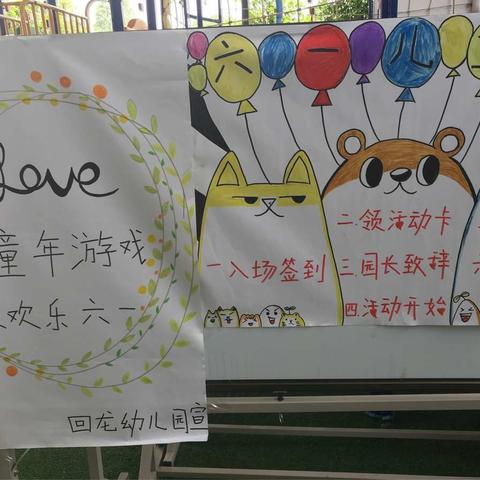 Love
童年游戏
欢乐六一
回龙幼儿园宣
六一儿
一入场签到
二.领活动卡
三.园长致辞
四.活动开始